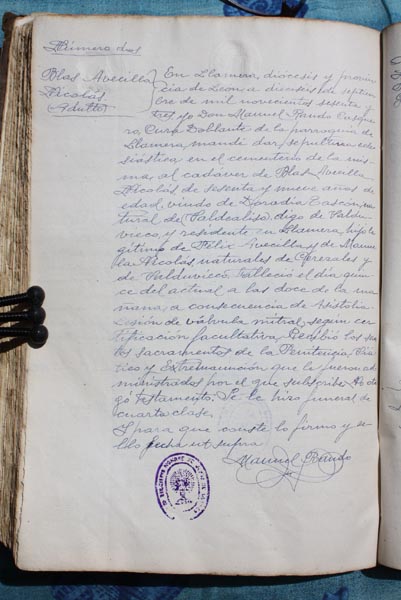 Número dos
Blas Avecilla
Nicolás
(Adulto)
En Llamera, diócesis y provin
cia de León, a dieciseis de septiem
bre de mil novecientos sesenta y
tres, yo Don Manuel Rando
Cura Doblante de la parroquia de
Llamera, mandé dar sepultura ecle
siástica en el cementerio de la mis
ma, al cadáver de Blas Avecilla
Nicolás de sesenta y nueve años de
edad, viudo de Doradía Tascón, na
tural de Valdealiso, digo de Valdu
vieco, y residente en Llamera, hijo le
gítimo de Félix Avecilla y de Manue
la Nicolás naturales de Cerezales y
de Valduvieco. Falleció el día quin
ce del actual a las doce de la ma
ñana, a consecuencia de Asistolia
Lesión de válvula mitral, según cer
tificación facultativa. Recibió los san
tos sacramentos de la Penitencia, Viá
tico y Extremaunción que le fueron ad
ministrados por el que subscribe. No otor
gó testamento. Se le hizo funeral de
cuarta clase.
Y para que conste lo firmo y se
llo fecha ut supra
Manuel Rando